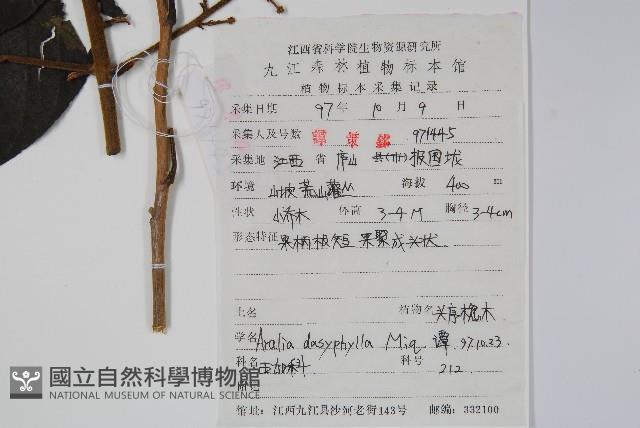 江西省科学院生物资源研究所
九江森林植物标本馆
植物标本采集记录
采集日期 97年 10月 9日
采集人及号数 谭策铭 971445
采集地 江西省 庐山县(市) 报国垅
环境 山坡荒山灌丛 海拔 400 m
性状 小乔木 体高 3-4M 胸径 3-4cm
形态特征 果柄极短 果聚成头状
土名 植物名 头序楤木
学名 Aralia dasyphylla Miq 谭 97.10.23.
科名 五加科 科号 212
附记
馆址:江西九江县沙河老街143号 邮编:332100
國立自然科學博物館
NATIONAL MUSEUM OF NATURAL SCIENCE